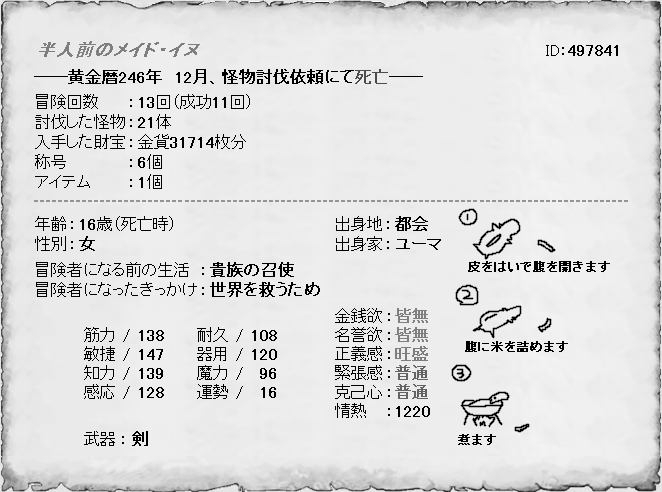 半人前のメイド・イヌ
ID:497841
――黄金暦246年 12月、怪物討伐依頼にて死亡――
冒険回数 : 13回(成功11回)
討伐した怪物 : 21体
入手した財宝 : 金貨31714枚分
称号 : 6個
アイテム : 1個
年齢 : 16歳(死亡時)
性別 : 女
出身地 : 都会
出身家 : ユーマ
冒険者になる前の生活 : 貴族の召使
冒険者になったきっかけ : 世界を救うため
筋力 / 138 耐久 / 108
敏捷 / 147 器用 / 120
知力 / 139 魔力 / 96
感応 / 128 運勢 / 16
武器 : 剣
金銭欲 : 皆無
名誉欲 : 皆無
正義感 : 旺盛
緊張感 : 普通
克己心 : 普通
情熱 : 1220
①
皮をはいで腹を開きます
②
腹に米を詰めます
③
煮ます